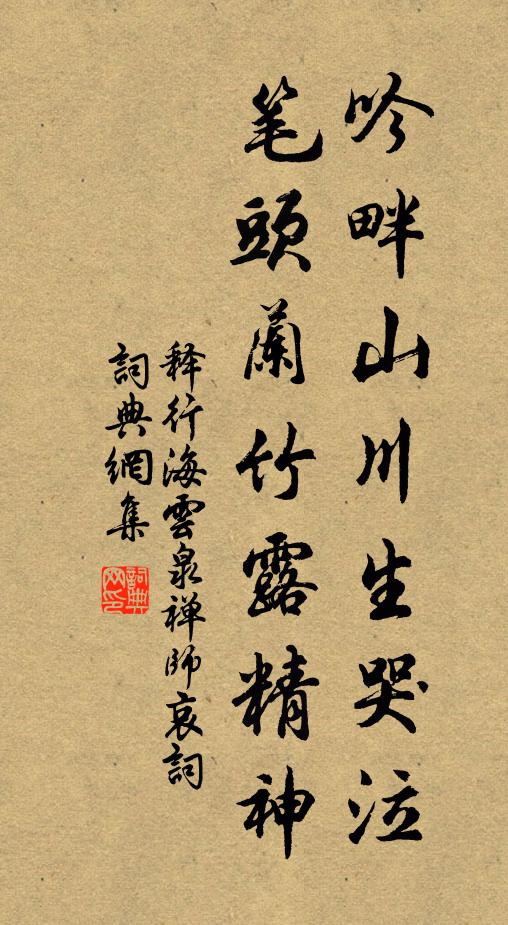 吟畔山川生哭泣
笔頭蘭竹露精神
释行海雲泉禅師哀詞
詞典網集
詞典网印